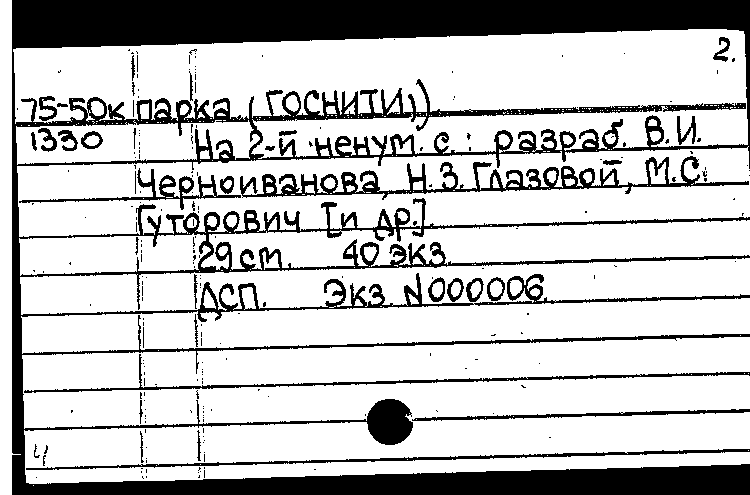 2.
75-50к парка (ГОСНИТИ,)
1330 На 2-й ненум. с.: разраб. В.И.
Черноиванова, Н.З. Глазовой, М.С.
Гуторович [и др.]
29 см. 40 экз.
ДСП. Экз. N000006.
4